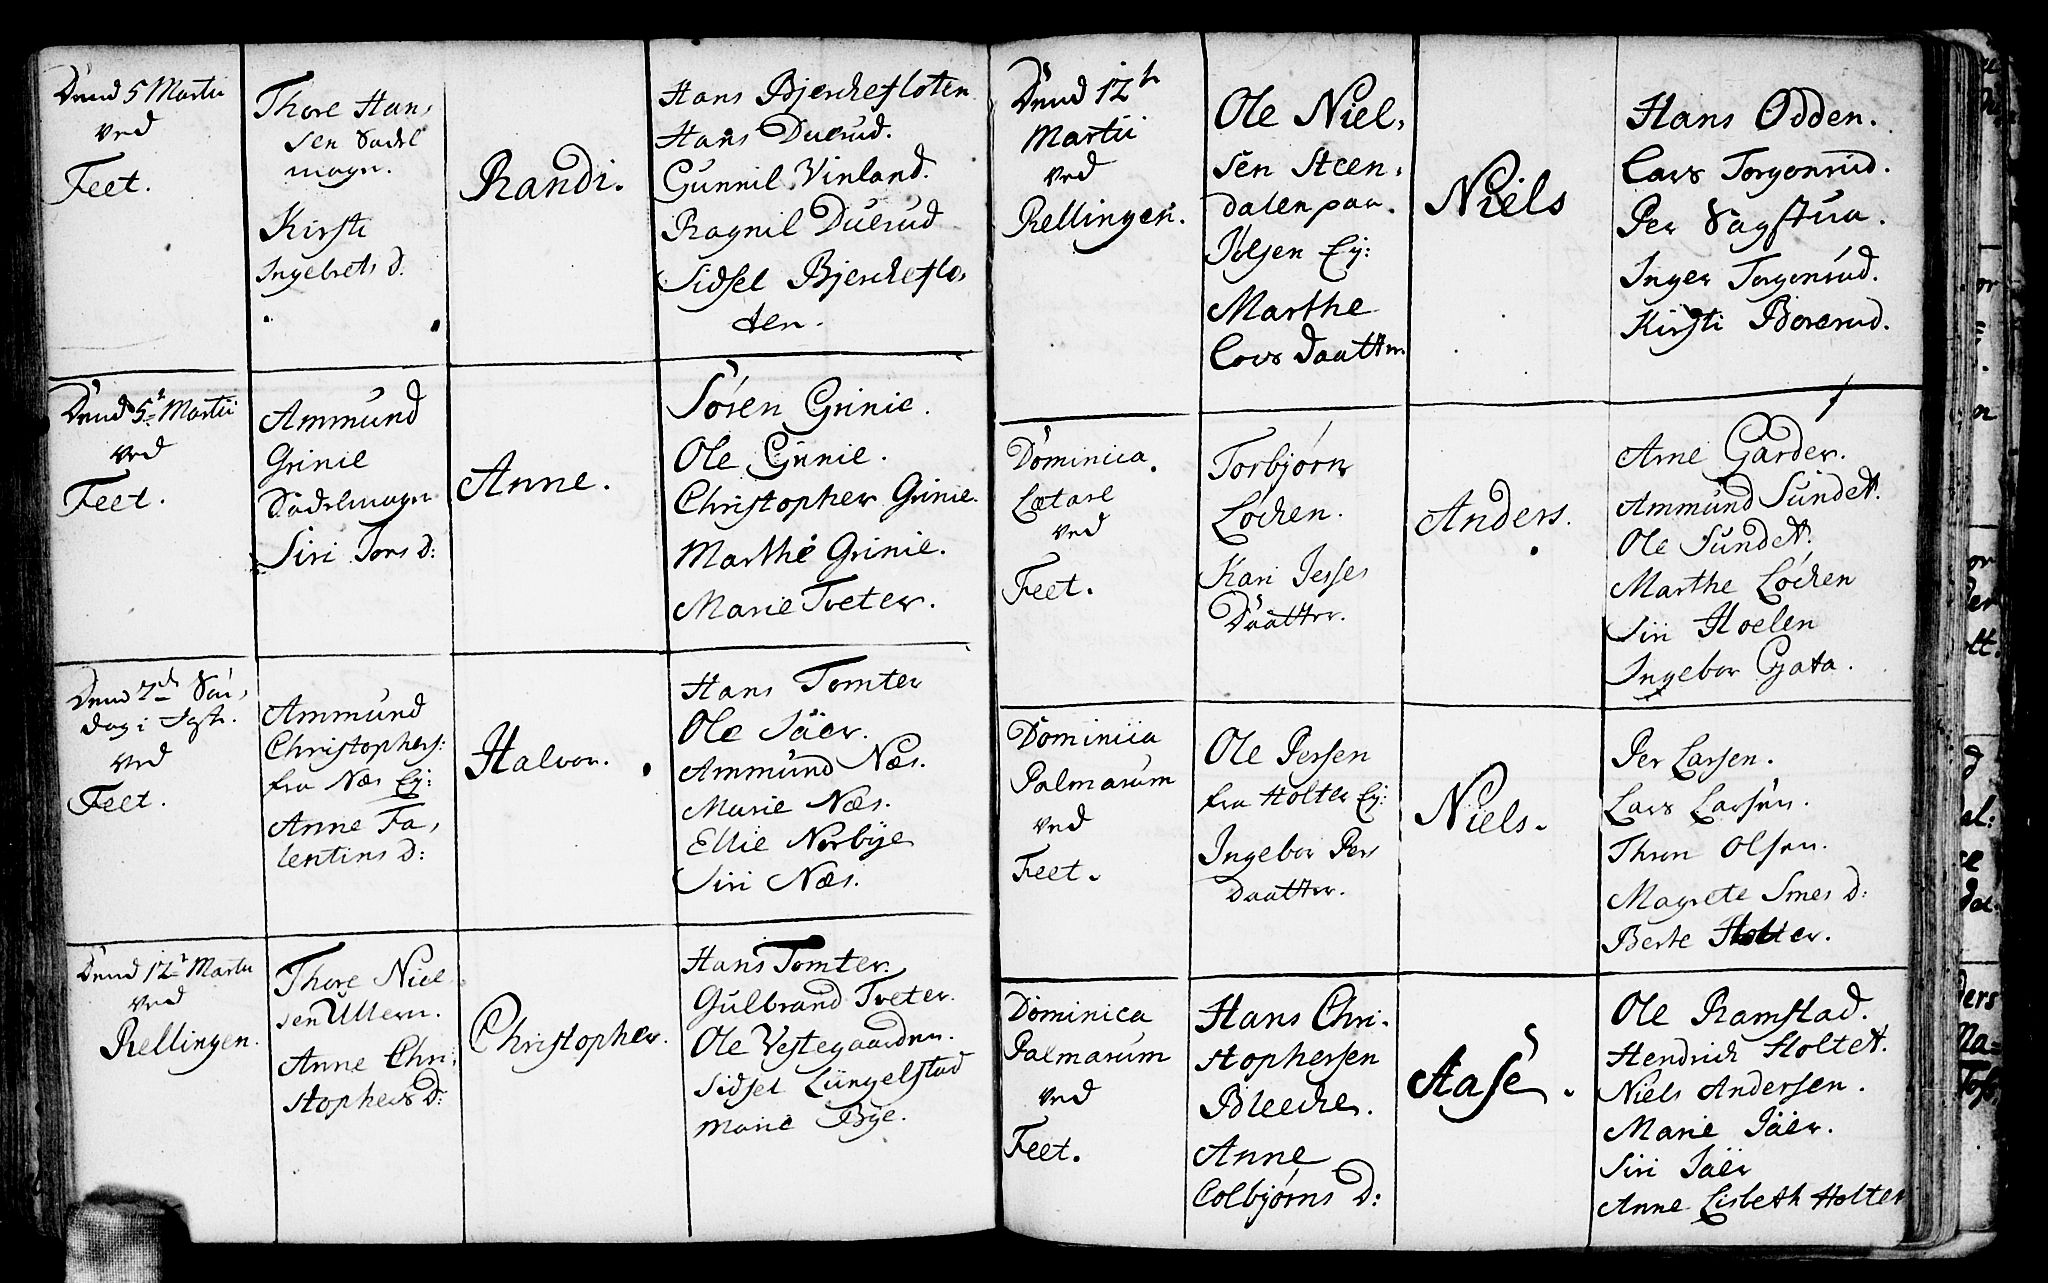 Dend 5 Martii
ved
Feet.
Thore Han,
sen Sadel
magr.
Kirsti
Ingebrets d:
Randi.
Hans Bjerchefloten
Hans Duerud.
Gunnil Vinland.
Ragnil Duerud
Sidsel Bjercheflo,
ten.
Dend 5t Martii
ved
Feet.
Ammund
Grinie
Sadelmagr
Siri Tors d:
Anne.
Sören Grinie.
Ole Grinie.
Christopher Grinie.
Marthe Grinie.
Marie Tveter.
Dend 2den Sön,
dag i Fast:
ved
Feet.
Ammund
Christophers:
fra Næs Ej:
Anne Fa,
lentins d:
Halvor.
Hans Tomter
Ole Jäer.
Ammund Næs.
Marie Næs.
Ellie Norbÿe
Siri Næs.
Dend 12t Martii
ved
Rellingen.
Thore Niel
sen Ullern.
Anne Chri,
stophers D:
Christopher.
Hans Tomter.
Gulbrand Tveter.
Ole Vestegaarden.
Sidsel Lüngelstad
Marie Bÿe.
Dend 12t
Martii
ved
Rellingen.
Ole Niel,
sen Steen,
dalen paa
Jölsen Ej:
Marthe
Lars Daatter
Niels
Hans Odden.
Lars Torgonrud.
Per Sagstua.
Inger Torgonrud.
Kirsti Borerud.
Dominica
Lætare
ved
Feet.
Torbjörn
Löchen.
Kari Jesses
Daatter.
Anders.
Arne Garder.
Ammund Sundet.
Ole Sundet.
Marthe Löchen
Siri Hoelen
Ingebor Gata.
Dominica
Palmarum
ved
Feet.
Ole Persen
fra Holter Ej:
Ingebor Pers
Daatter.
Niels.
Per Larsen.
Lars Larsen.
Thron Olsen.
Magrete Smes D:
Berte Holter.
Dominica
Palmarum
ved
Feet.
Hans Chri-
stophersen
Bleeche.
Anne
Colbjörns D:
Aase.
Ole Ramstad.
Hendrich Holtet.
Niels Andersen.
Marie Jäer.
Siri Jäer
Anne Lisbeth Holter